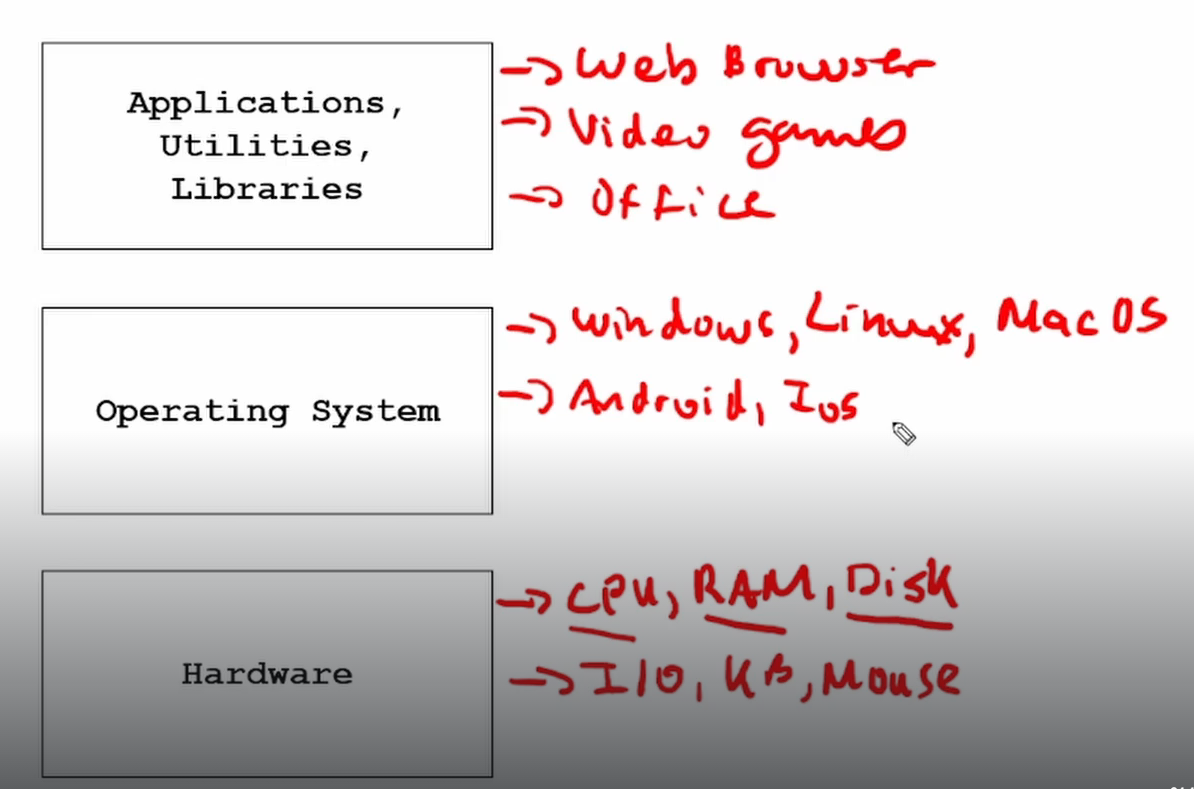 Applications,
Utilities,
Libraries
→ Web Browser
→ Video games
→ Office
Operating System
→ Windows, Linux, Mac OS
→ Android, Ios
Hardware
→ CPU, RAM, Disk
→ I/O, KB, Mouse